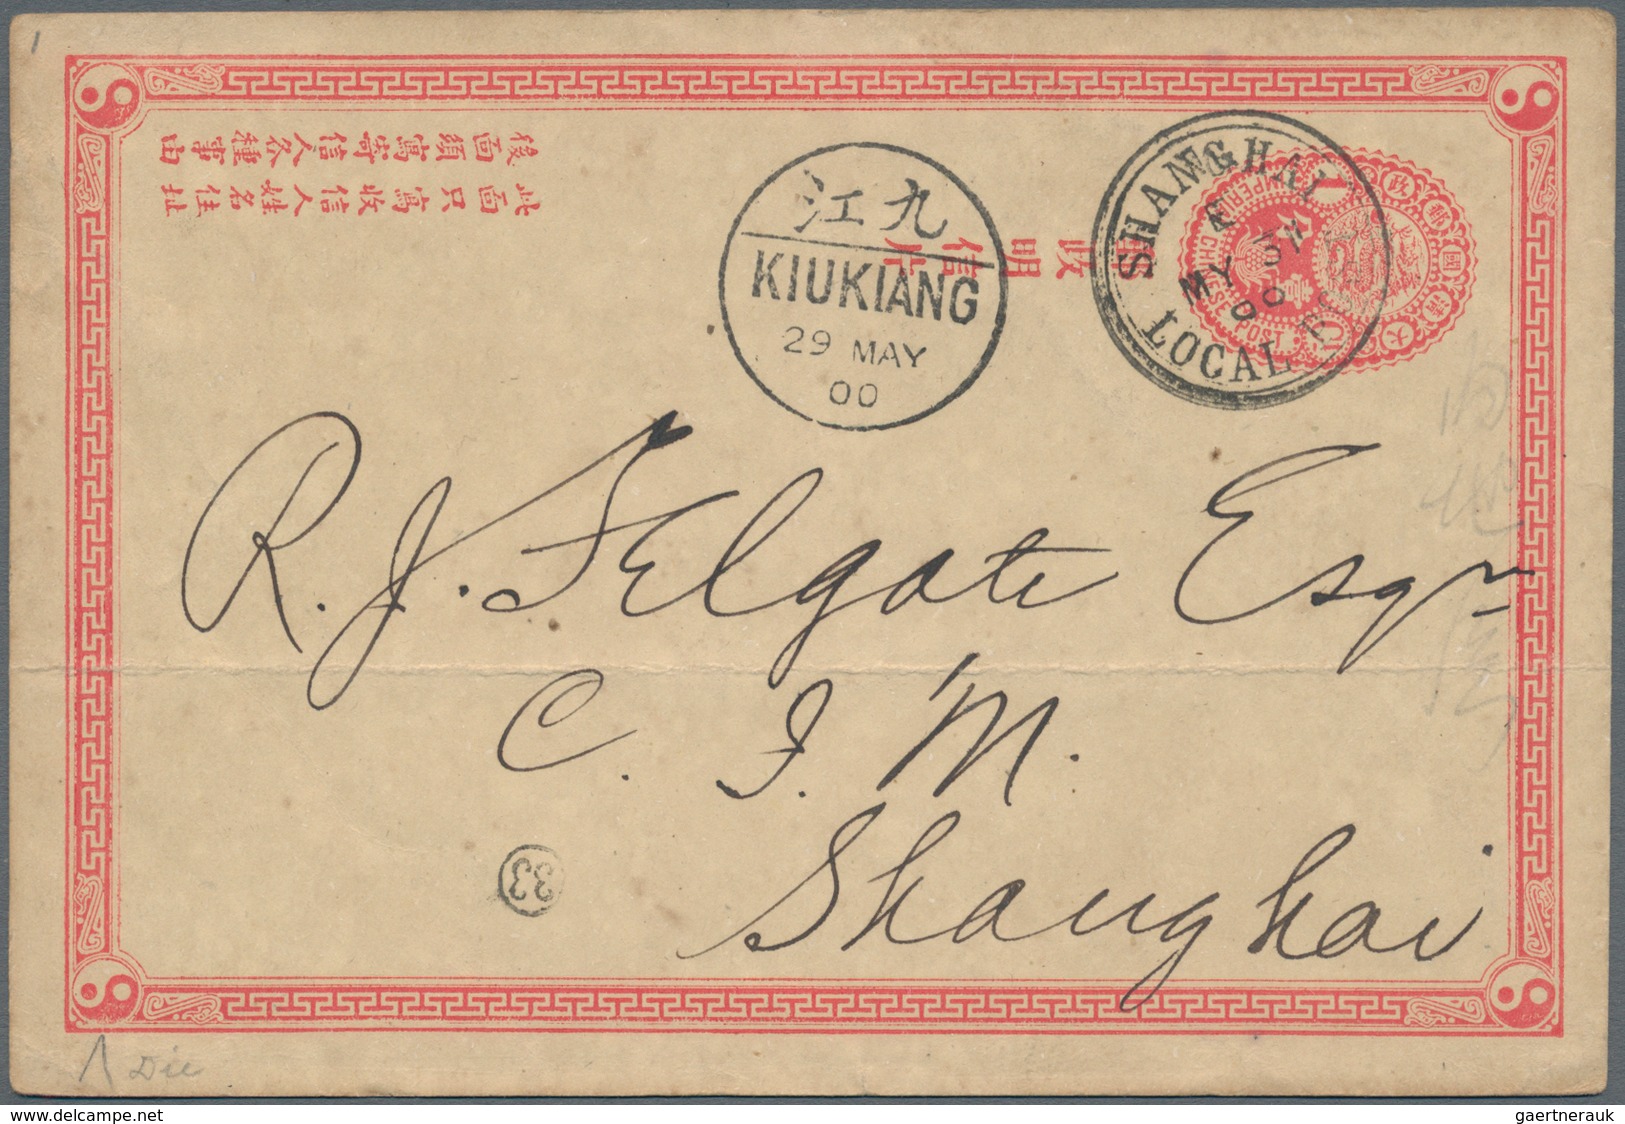 後面須寫寄信人各種事由
此面只寫收信人姓名住址
郵政明信片
大清國郵政
IMPERIAL CHINESE POST
1
九江
KIUKIANG
29 MAY
00
SHANGHAI
E
MY 31
00
LOCAL POST
R. J. Felgate Esqre
C. I. M.
Shanghai
33
Die
www.delcampe.net
gaertnerauk